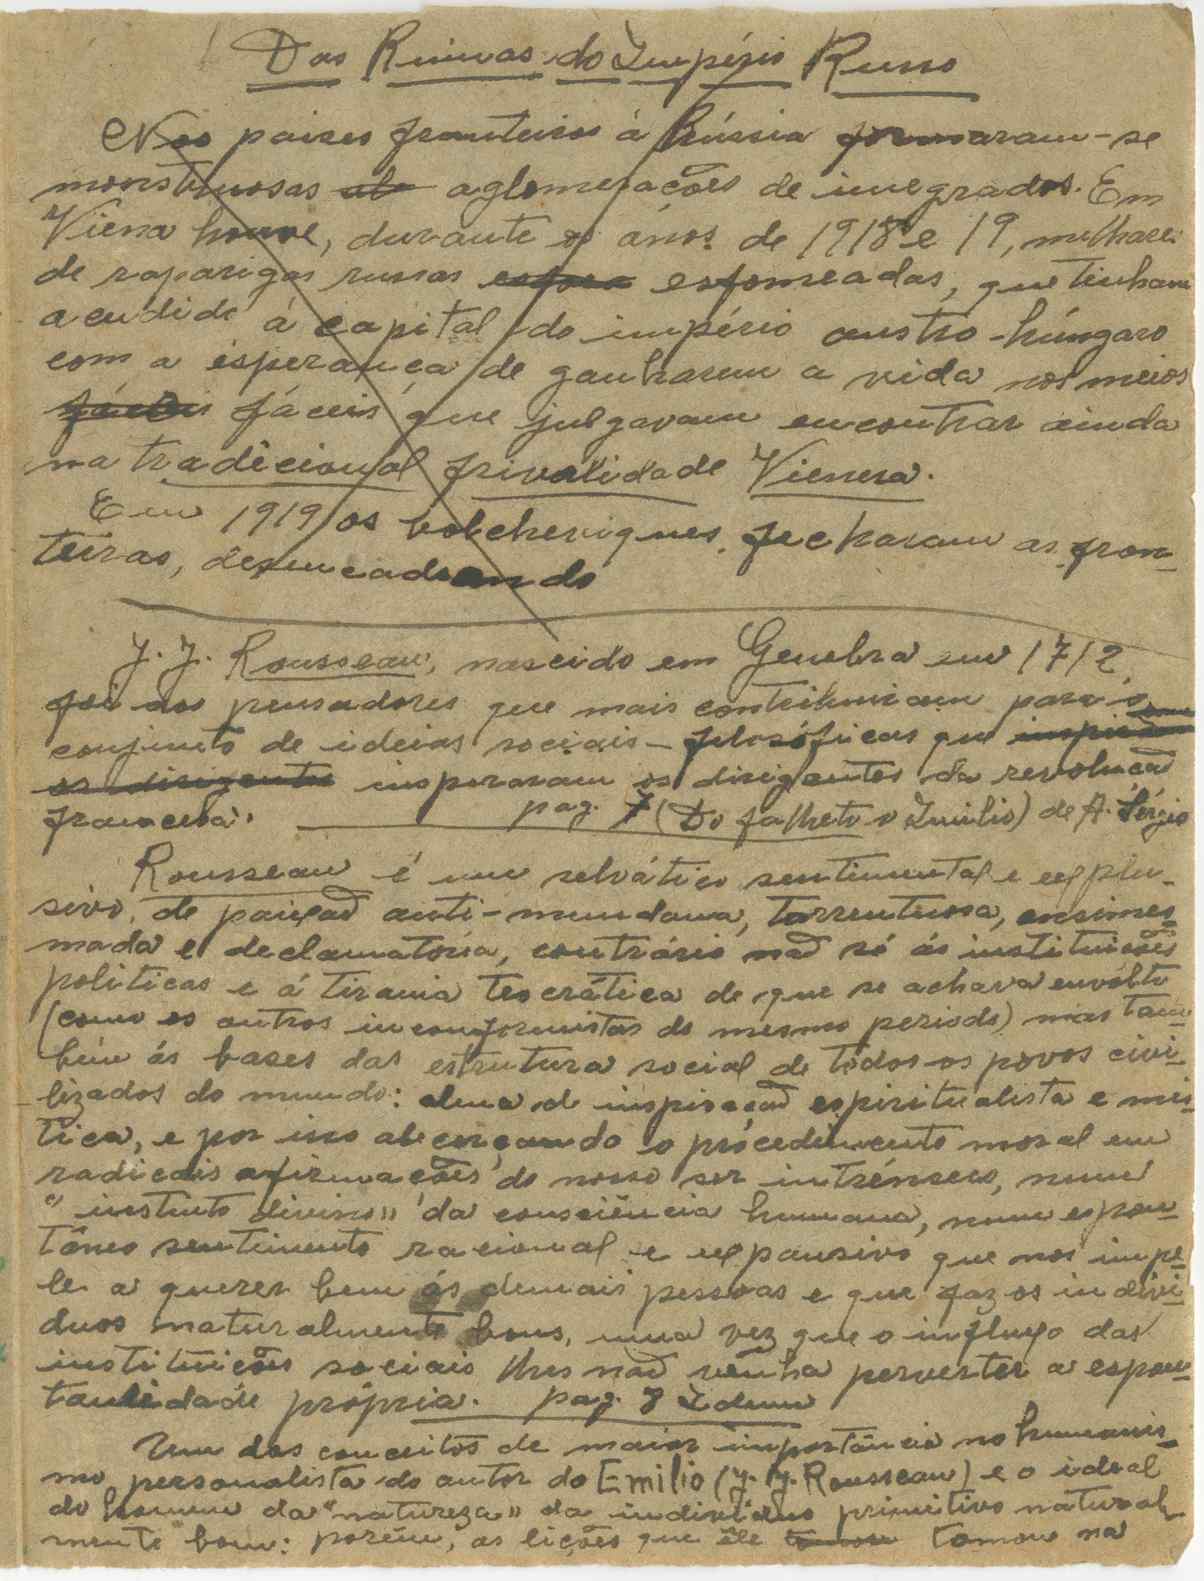 Das Ruinas do Império Russo
Nos paises fronteiros á Rússia formaram-se
monstruosas ab aglomerações de imegrados. Em
Viena houve, durante os ános de 1918 e 19, milhares
de raparigas russas esfoea esfomeadas, que tinham
acudido á capital do império austro-húngaro
com a esperança de ganharem a vida nos meios
fáceis fáceis que julgavam encontrar ainda
na tradicional frivolidade Vienera.
Em 1919 os bolcheviques fecharam as fron-
teiras, desencadeando
J. J. Rousseau, nascido em Genebra em 1712
foi dos pensadores que mais contribuiram para o
conjunto de ideias sociais-filosóficas que inspiram
os dirigentes insperaram os dirigentes da revolução
francesa. pag. 7 (Do falheto o Imilio) de A. Sérgio
Rousseau é um selvático sentimental e explu-
sivo, de paixão anti-mundana, torrentuosa, ensimes-
mada e declamatória, contrário não só ás instituições
politicas e á tirania teocrática de que se achava envolto
(como os outros inconformistas do mesmo periodo) mas tam-
bém ás bases das estrutura social de todos os povos civi-
lizados do mundo: alma de inspiração espiritualista e mis-
tica, e por isso alicerçando o procedimento moral em
radicais afirmações do nosso ser intrénseco, num
"instinto divino" da consciência humana, num espon-
tâneo sentimento racional e expansivo que nos impe-
le a querer bem ás demais pessoas e que faz os indivi-
duos naturalmente bons, uma vez que o influxo das
instituições sociais lhes não venha perverter a espon-
taneidade própria. pag. 7 Idem
Um dos conceitos de maior importância no humanis-
mo personalista do autor do Emilio (J. J. Rousseau) e o ideal
do homem da "natureza" da individuo primitivo natural-
mente bom: porém, as lições que êle tomou tomou na